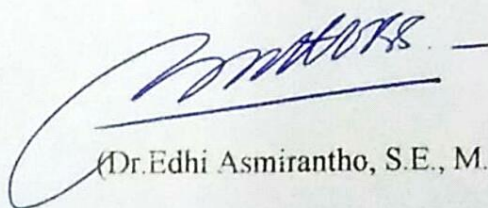 (Dr.Edhi Asmirantho, S.E., M.